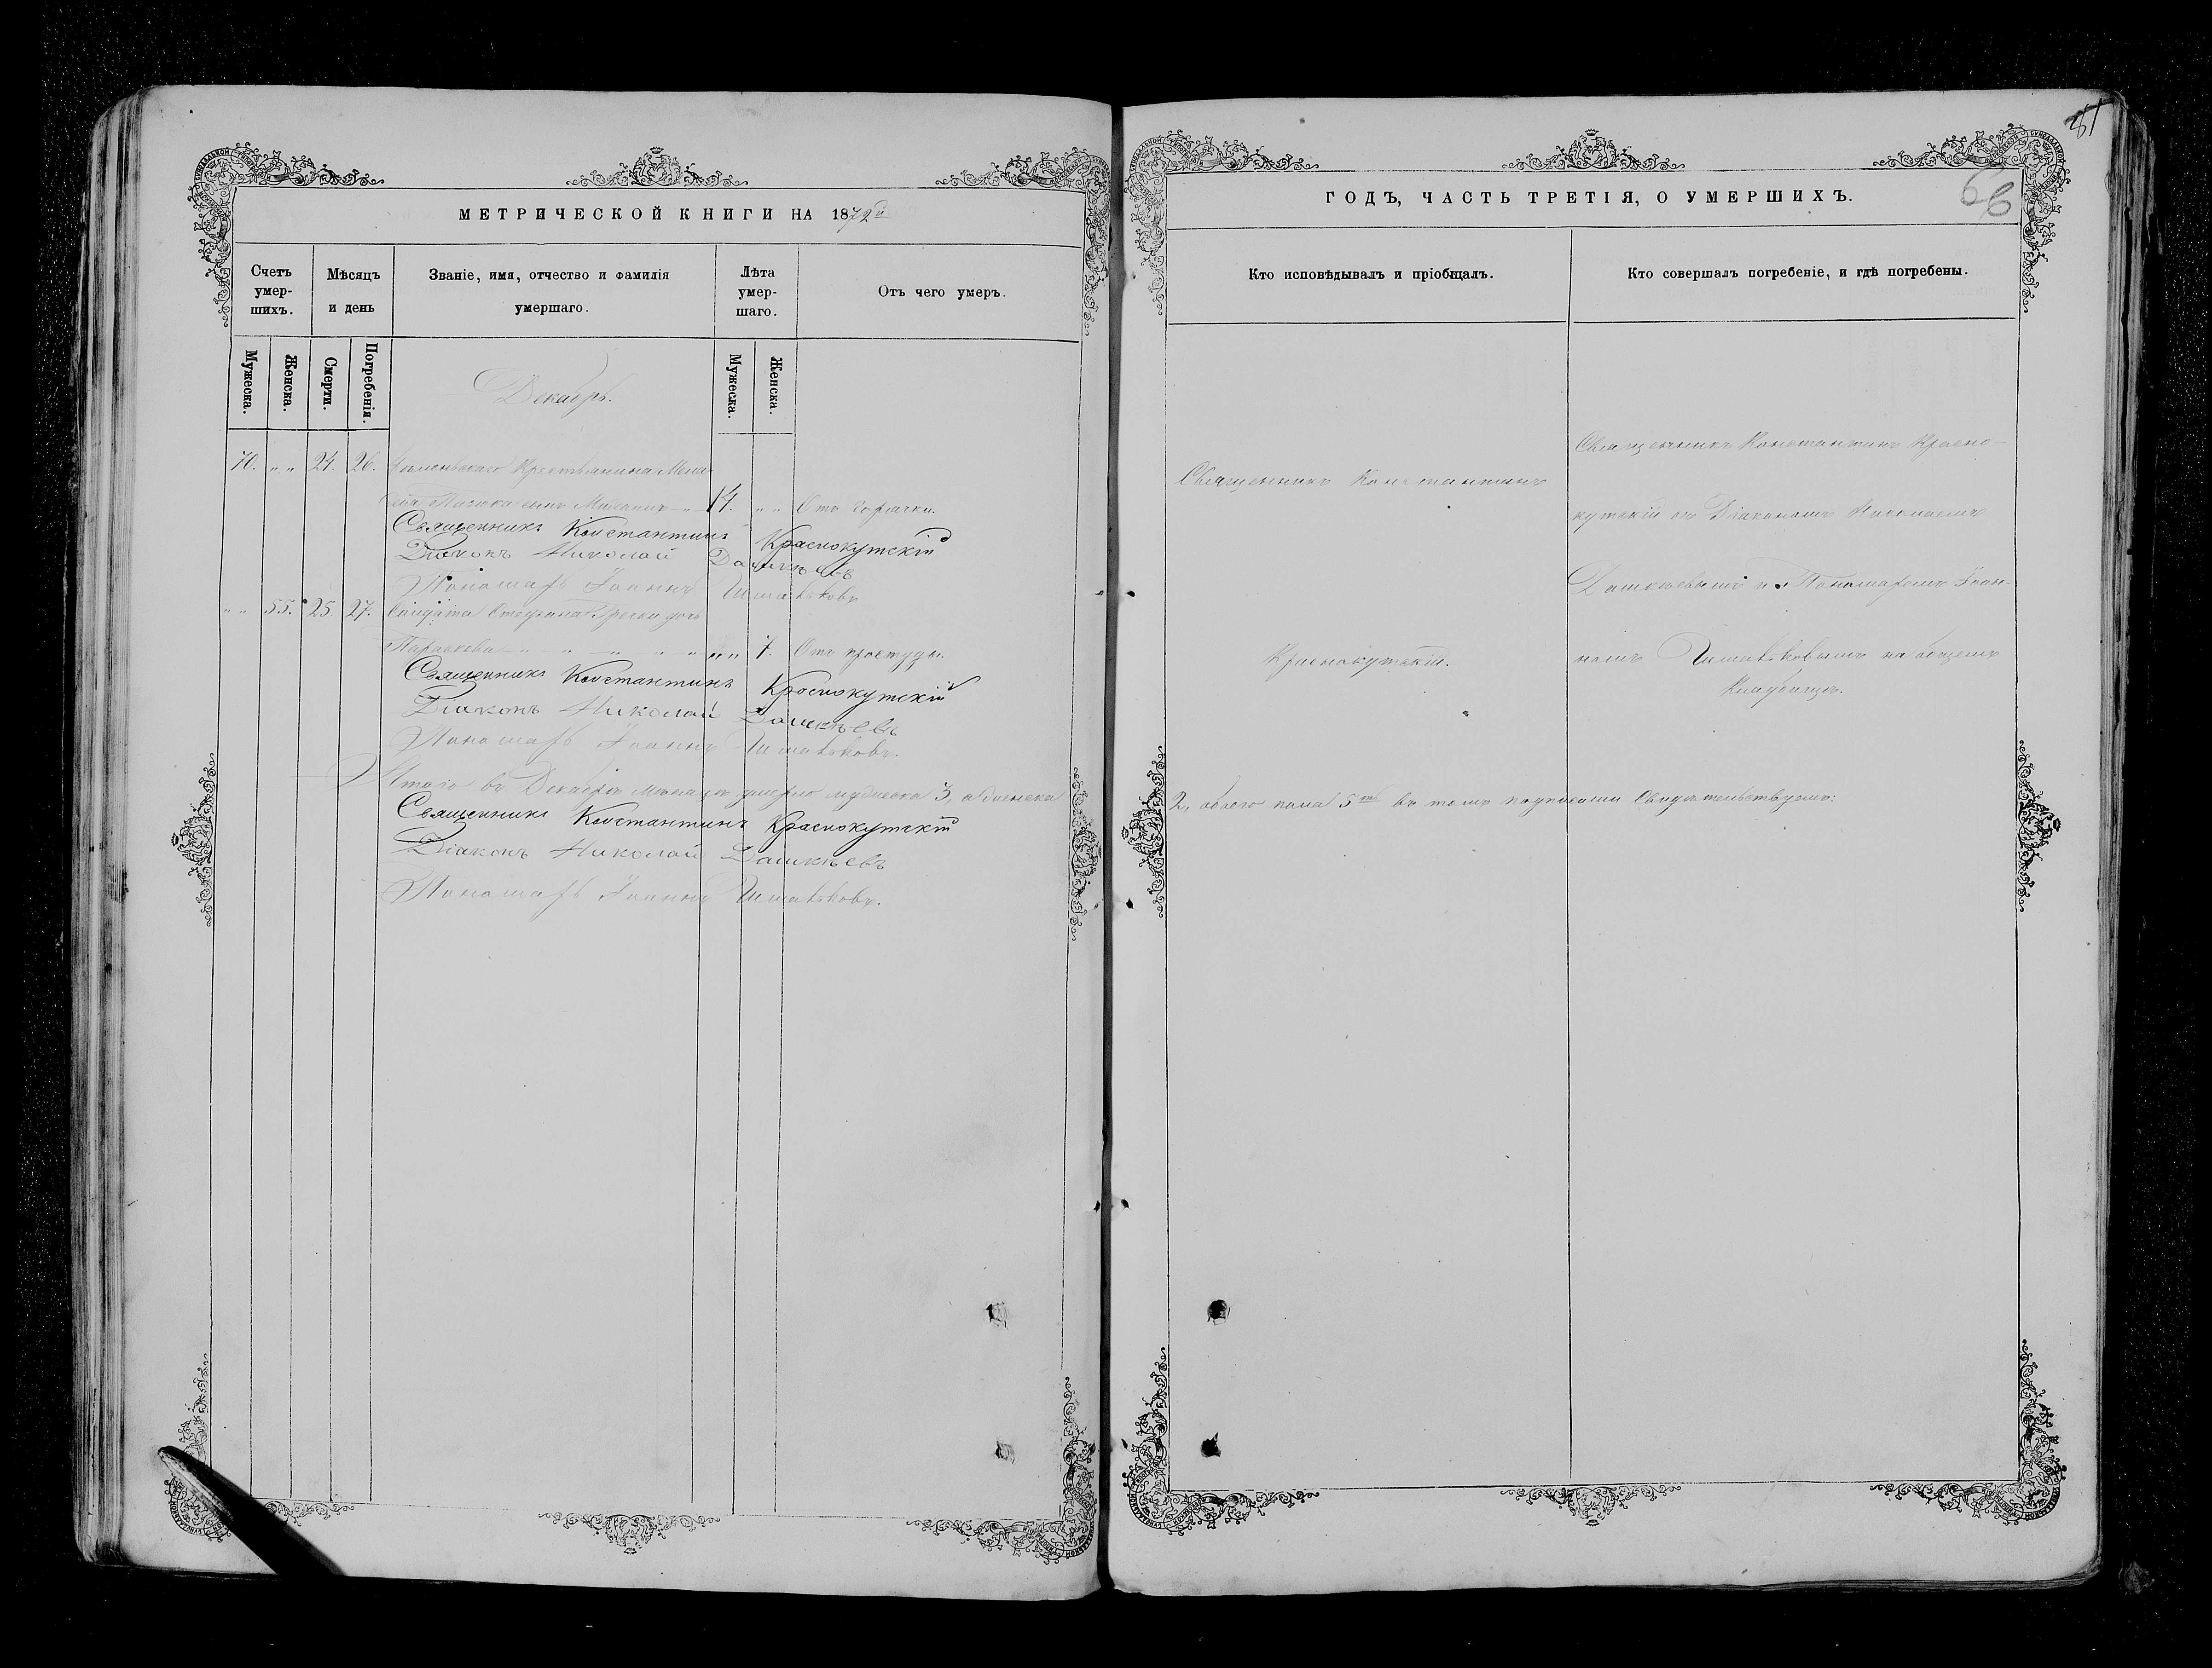 МЕТРИЧЕСКОЙ КНИГИ НА 1872й
Счетъ умер-
шихъ.
Мѣсяцъ
и день
Званіе, имя, отчество и фамилія
умершаго.
Лѣта
умер-
шаго.
Отъ чего умеръ.
Мужеска.
Женска.
Смерти.
Погребенія.
Мужеска.
Женска.
Декабрь.
70. „ „ 24. 26. Крестьянина
сынъ 14. „ „ Отъ горячки.
Священникъ Константинъ Краснокутскій
Діаконъ Николай Дашкѣевъ
Пономарь Іоаннъ
„ „ 55. 25. 27. Солдата Стефана дочь
Параскева „ „ „ „ „ „ 7. Отъ простуды.
Священникъ Константинъ Краснокутскій
Діаконъ Николай Дашкѣевъ
Пономарь Іоаннъ
Итого въ Декабрѣ Мѣсяцѣ умерло мужеска 3, а женска
Священникъ Константинъ Краснокутскій
Діаконъ Николай Дашкѣевъ
Пономарь Іоаннъ
51
66
ГОДЪ, ЧАСТЬ ТРЕТІЯ, О УМЕРШИХЪ.
Кто исповѣдывалъ и пріобщалъ.
Кто совершалъ погребеніе, и гдѣ погребены.
Священникъ Константинъ
Краснокутскій.
Священникъ Константинъ Красно-
кутскій съ Діакономъ Николаемъ
Дашкѣевымъ и Пономаремъ Іоан-
номъ на общемъ
Кладбищѣ.
2, обоего пола 5ть въ томъ подписами Свидѣтельствуемъ: